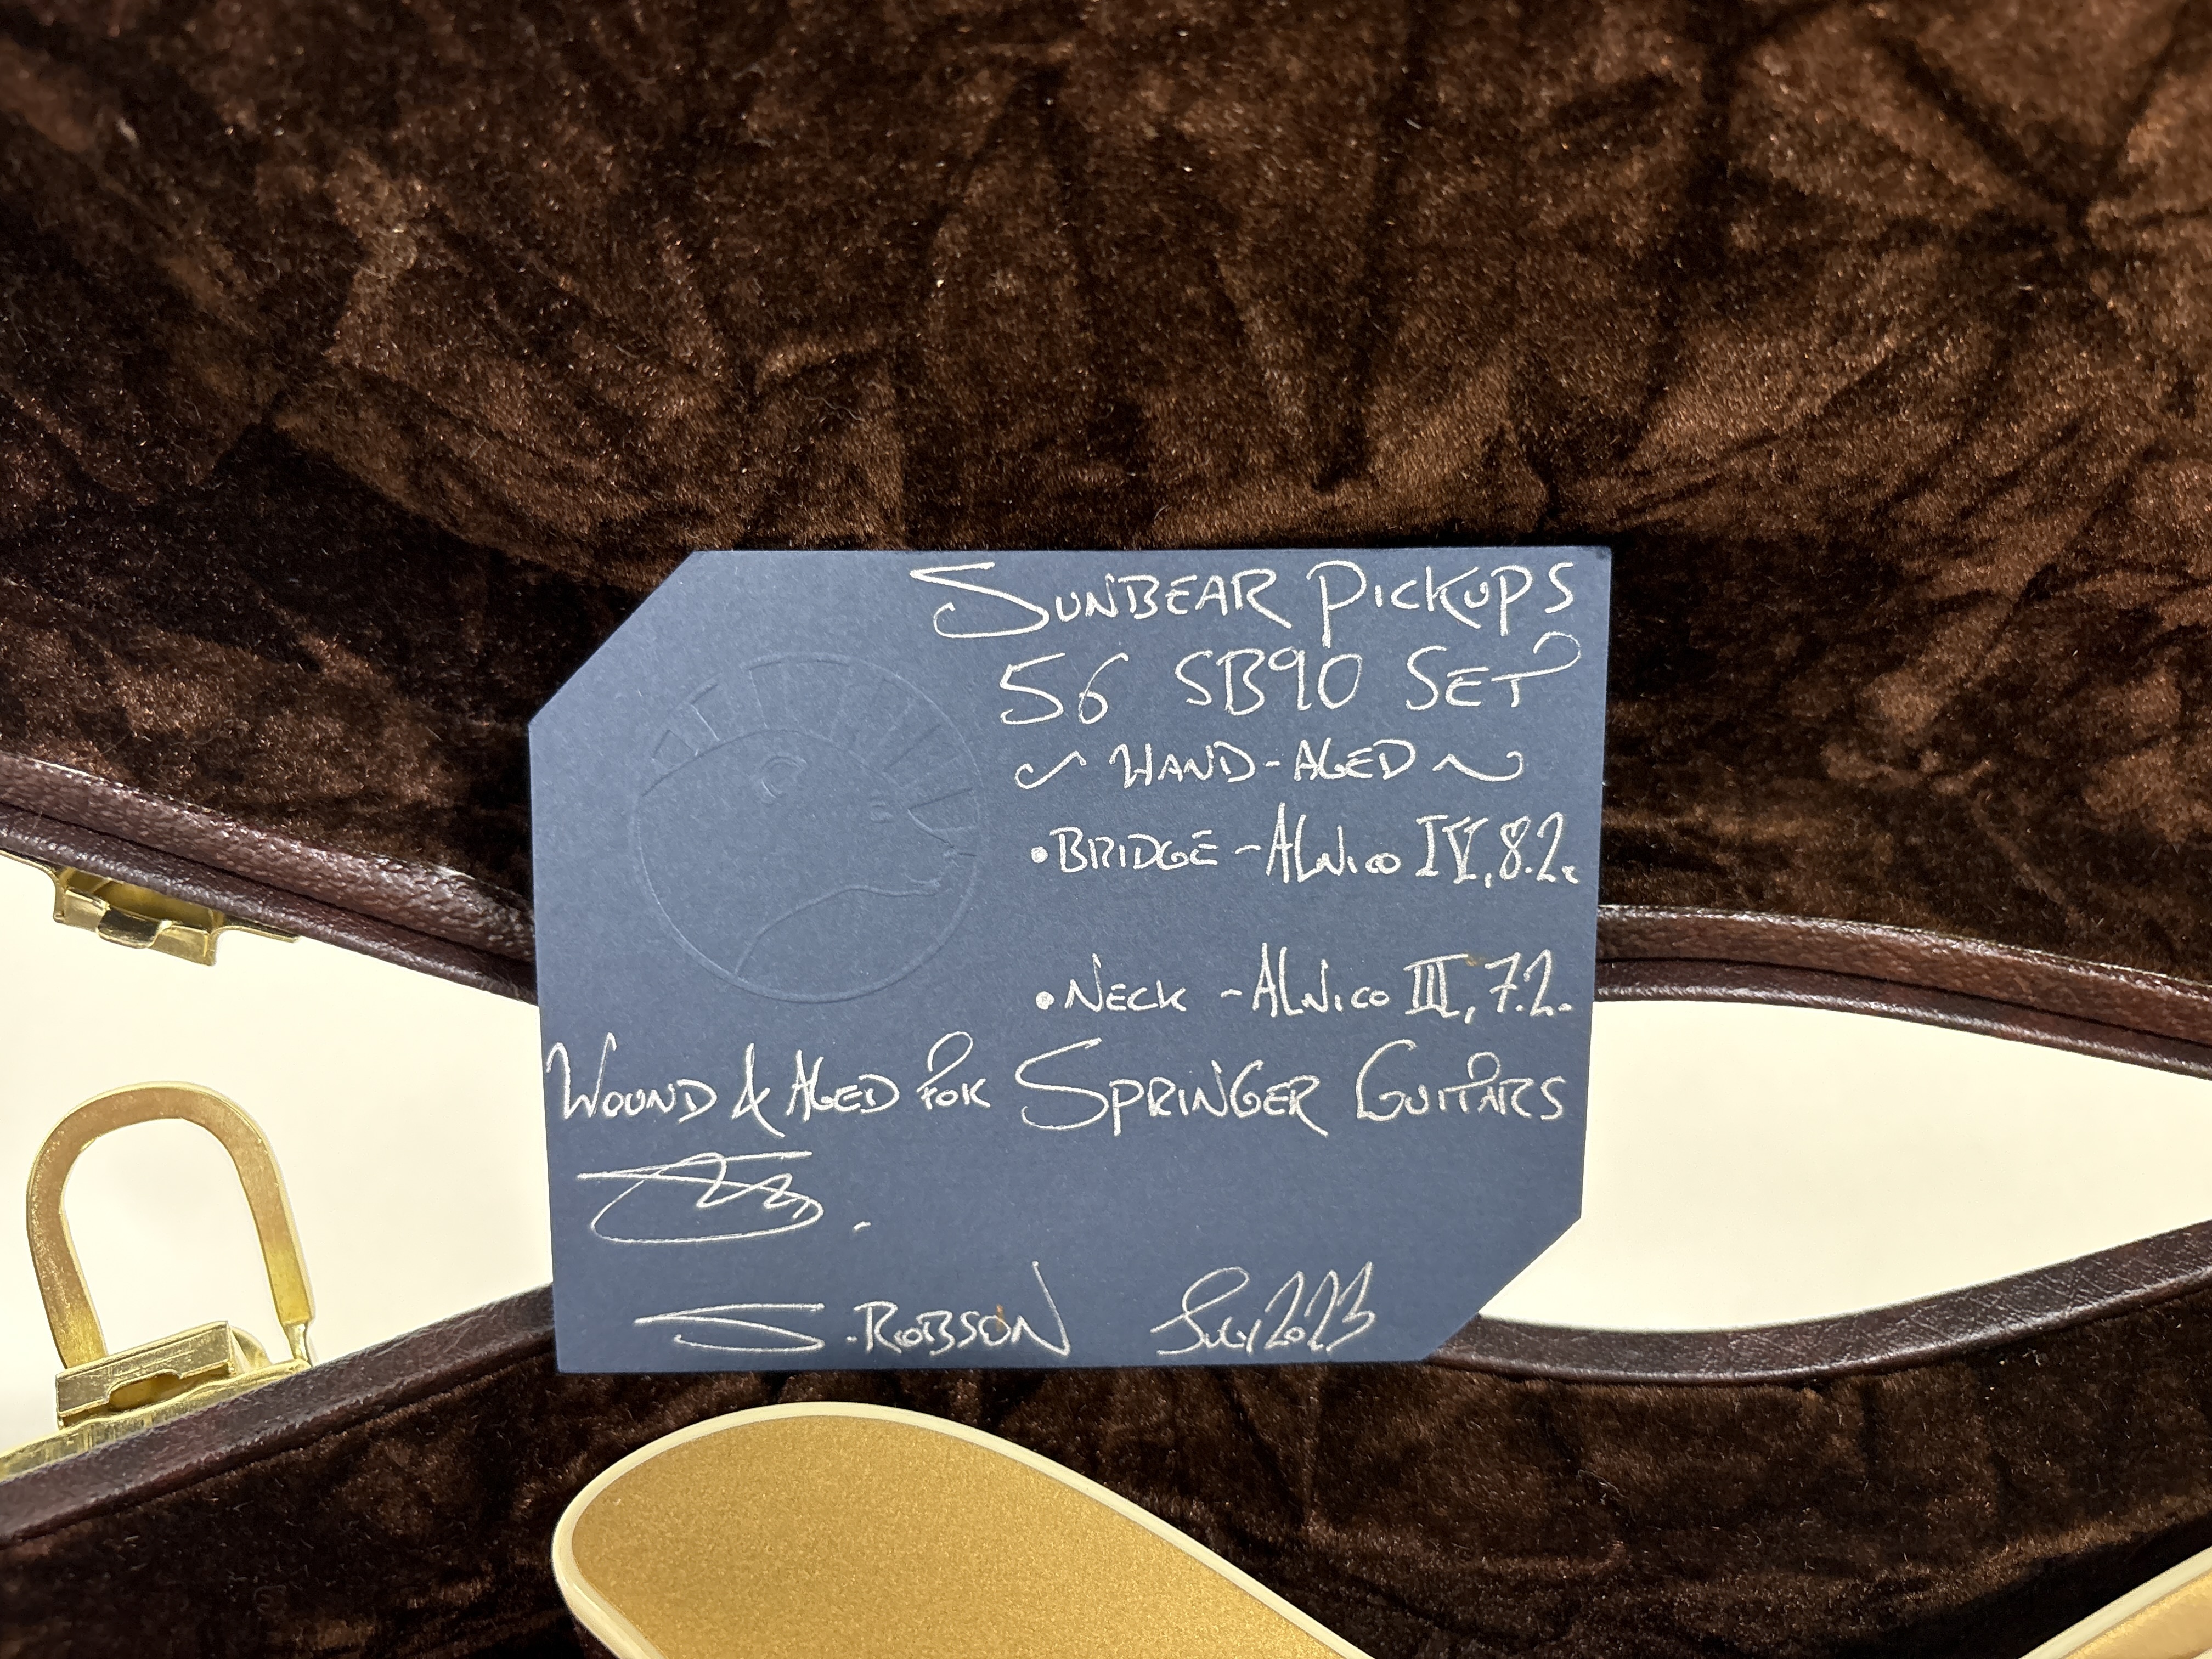 SUNBEAR PICKUPS
56 SB90 SET
~ HAND-AGED ~
• BRIDGE - ALNICO IV, 8.2K
• NECK - ALNICO III, 7.2K
WOUND & AGED FOR SPRINGER GUITARS
S. ROBSON July 2023